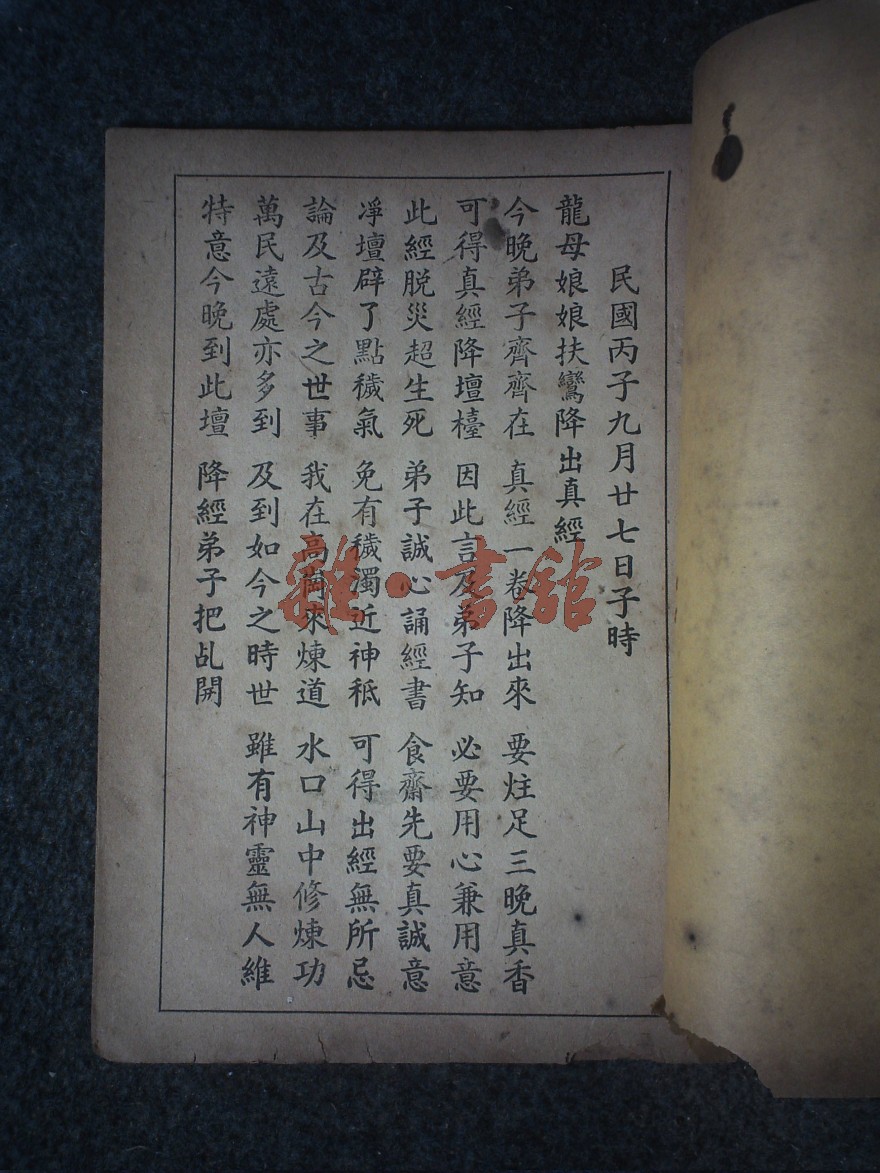 民國丙子九月廿七日子時
龍母娘娘扶鸞降出真經
今晚弟子齊齊在 真經一卷降出來 要炷足三晚真香
可得真經降壇檯 因此言及弟子知 必要用心兼用意
此經脱災超生死 弟子誠心誦經書 食齋先要真誠意
凈壇辟了點穢氣 免有穢濁近神秪 可得出經無所忌
論及古今之世事 我在高崗來煉道 水口山中修煉功
萬民遠處亦多到 及到如今之時世 雖有神靈無人維
特意今晚到此壇 降經弟子把乩開
雜·書舘